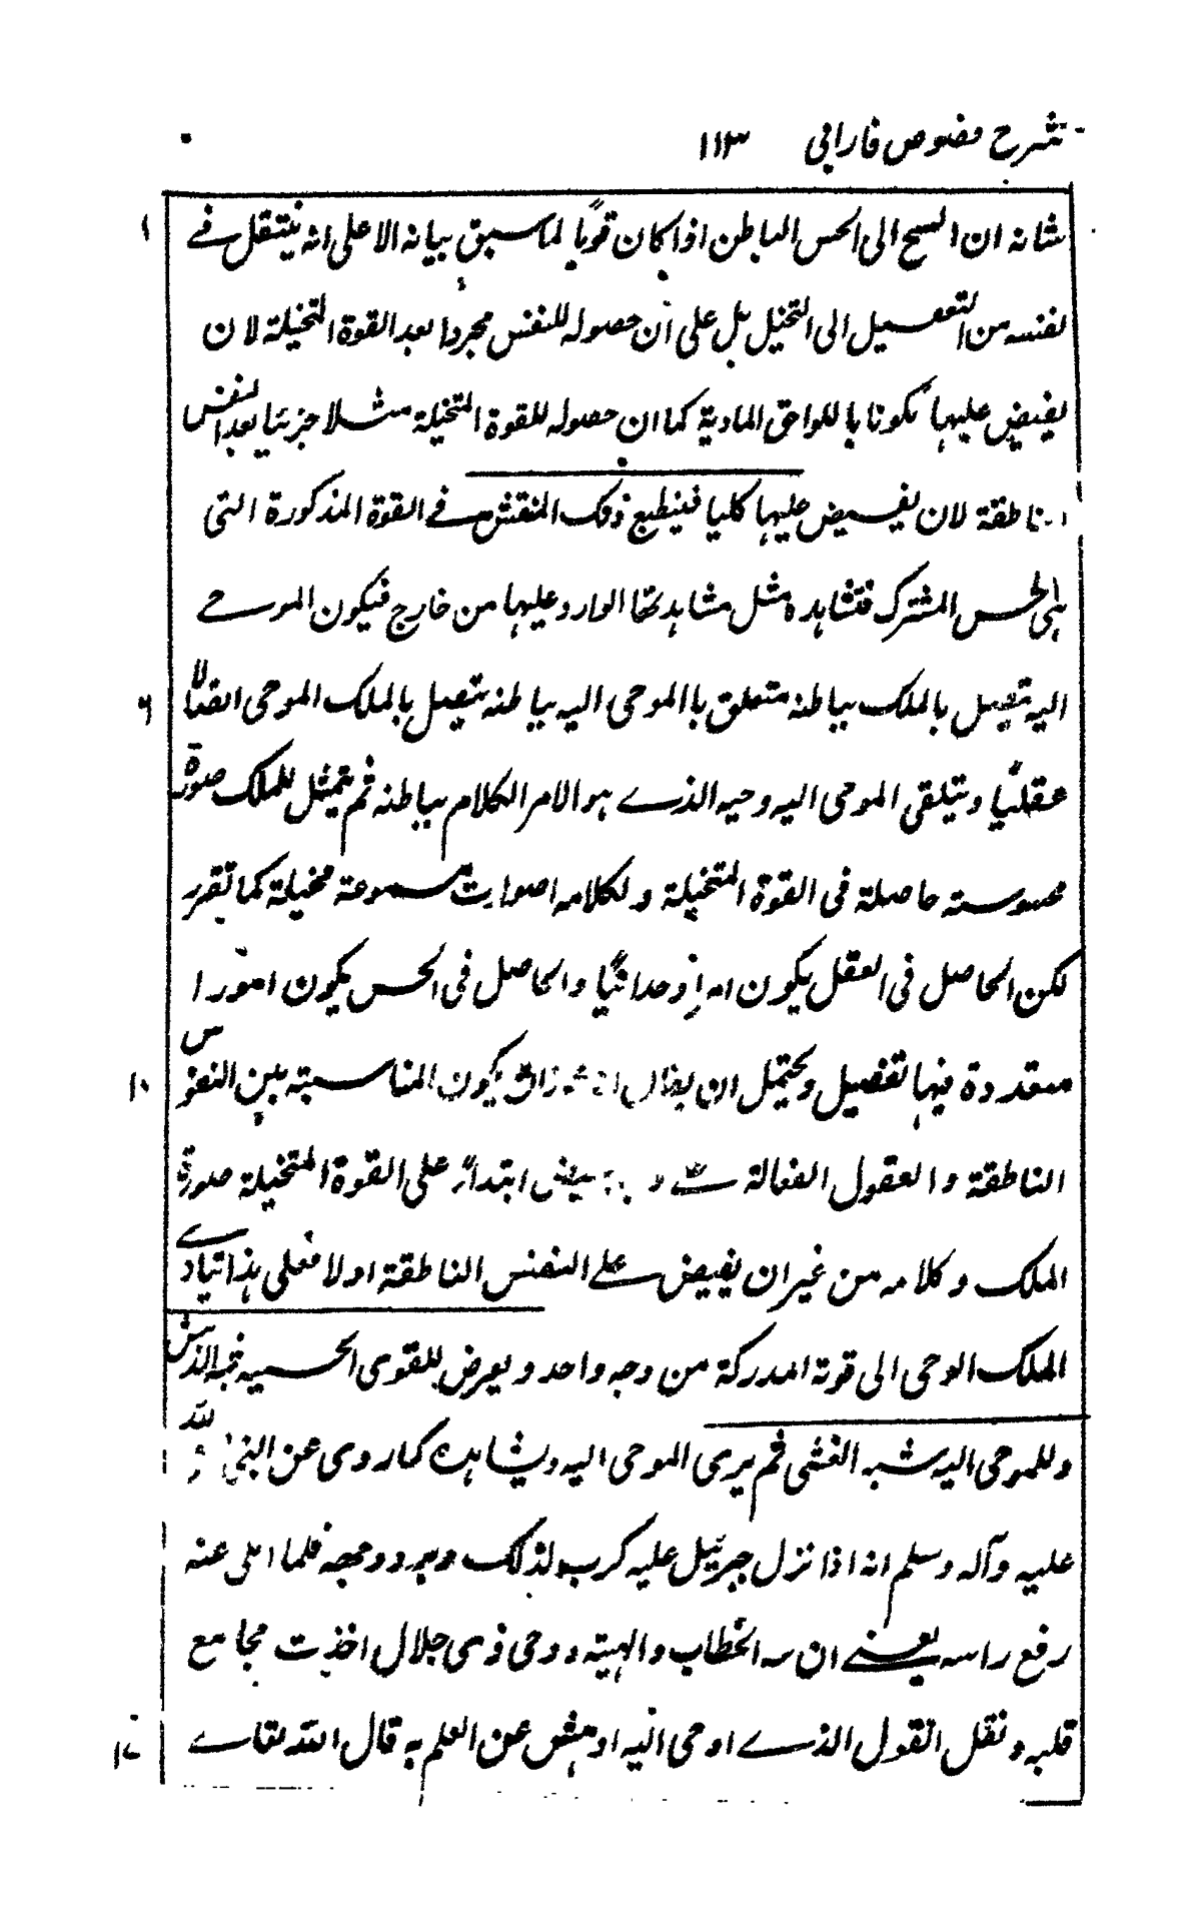 شرح فصوص فارابي ١١٣
شانه ان السيح الى الحس الباطن اذا كان قويا لما سبق بيانه الا على انه ينتقل في
نفسه من التفصيل الى التخيل بل على ان حصوله للنفس مجردا بعد القوة المتخيلة لان
يفيض عليها مكونا باللواحق المادية كما ان حصوله للقوة المتخيلة مثلا جزئيا بعد النفس
الناطقة لان يفيض عليها كليا فينطبع ذلك المنقش في القوة المذكورة التى
هى الحس المشترك فتشاهده مثل مشاهدتها الوارد عليها من خارج فيكون الموحے
اليه يتصل بالملك بباطنه متعلق بالموحى اليه بباطنه يتصل بالملك الموحى اتصالا
عقليا و يتلقى الموحى اليه وحيه الذے هو الامر الكلام بباطنه ثم يتمثل للملك صورة
محسوسته حاصلة فى القوة المتخيلة و لكلامه اصوات مسموعة مخيلة كما تقرر
لكن الحاصل فى العقل يكون امرا وحدانيا و الحاصل فى الحس يكون امورا
متعددة فيها تفصيل و يحتمل ان يقال يكون المناسبته بين النفوس
الناطقة و العقول الفعالة يفيض ابتداء على القوة المتخيلة صورة
الملك و كلامه من غير ان يفيض علے النفس الناطقة اولا فعلى هذا تيادے
الملك الوحى الى قوته المدركة من وجه واحد و يعرض للقوى الحسيه شبه الدش
و للموحى اليه شبه الغشى ثم يرى الموحى اليه و يشاهده كما روى عن النبى الله
عليه وآله وسلم انه اذا نزل جبرئيل عليه كرب لذلك و يربد وجهه فلما اعلى عنه
رفع راسه يعنے ان الخطاب و الهيبته و وحى ذى جلال اخذت مجامع
قلبه و نقل القول الذے اوحى اليه اوهش عن العلم به قال الله تعالے
١
٦
١٠